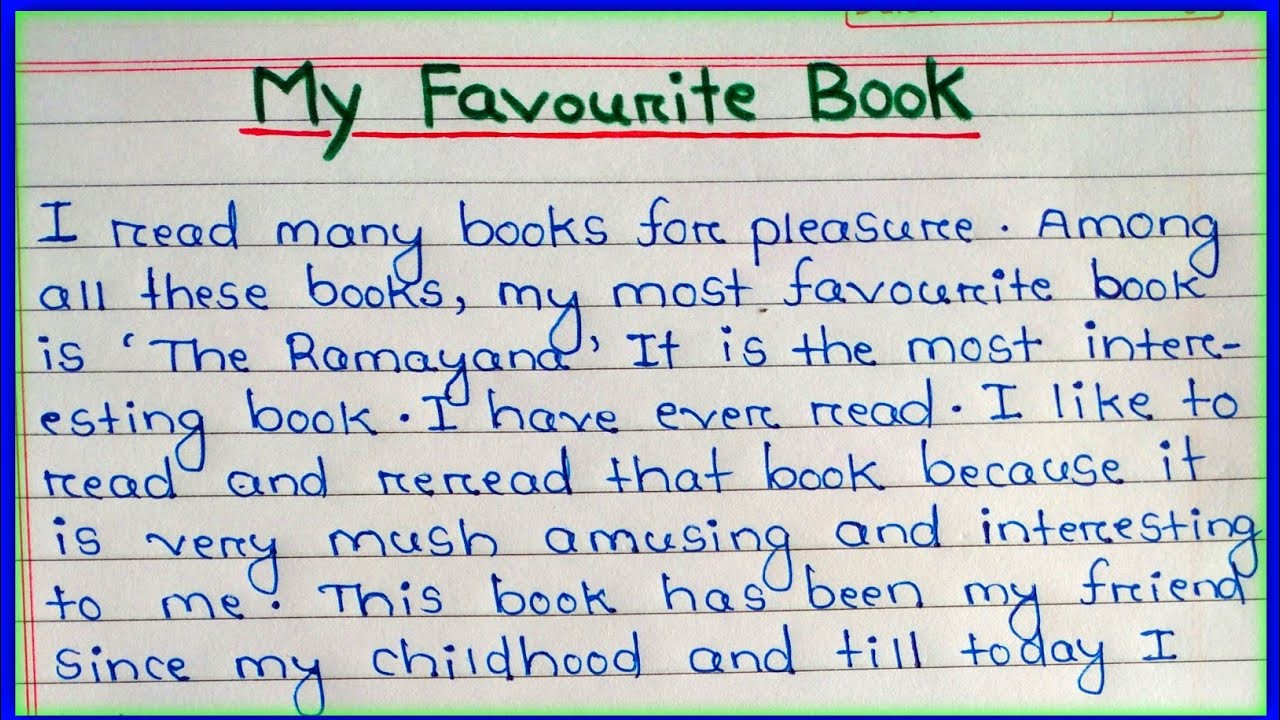 My Favourite Book
I read many books for pleasure. Among
all these books, my most favourite book
is 'The Ramayana' It is the most inter-
esting book. I have ever read. I like to
read and reread that book because it
is very mush amusing and interesting
to me. This book has been my friend
since my childhood and till today I